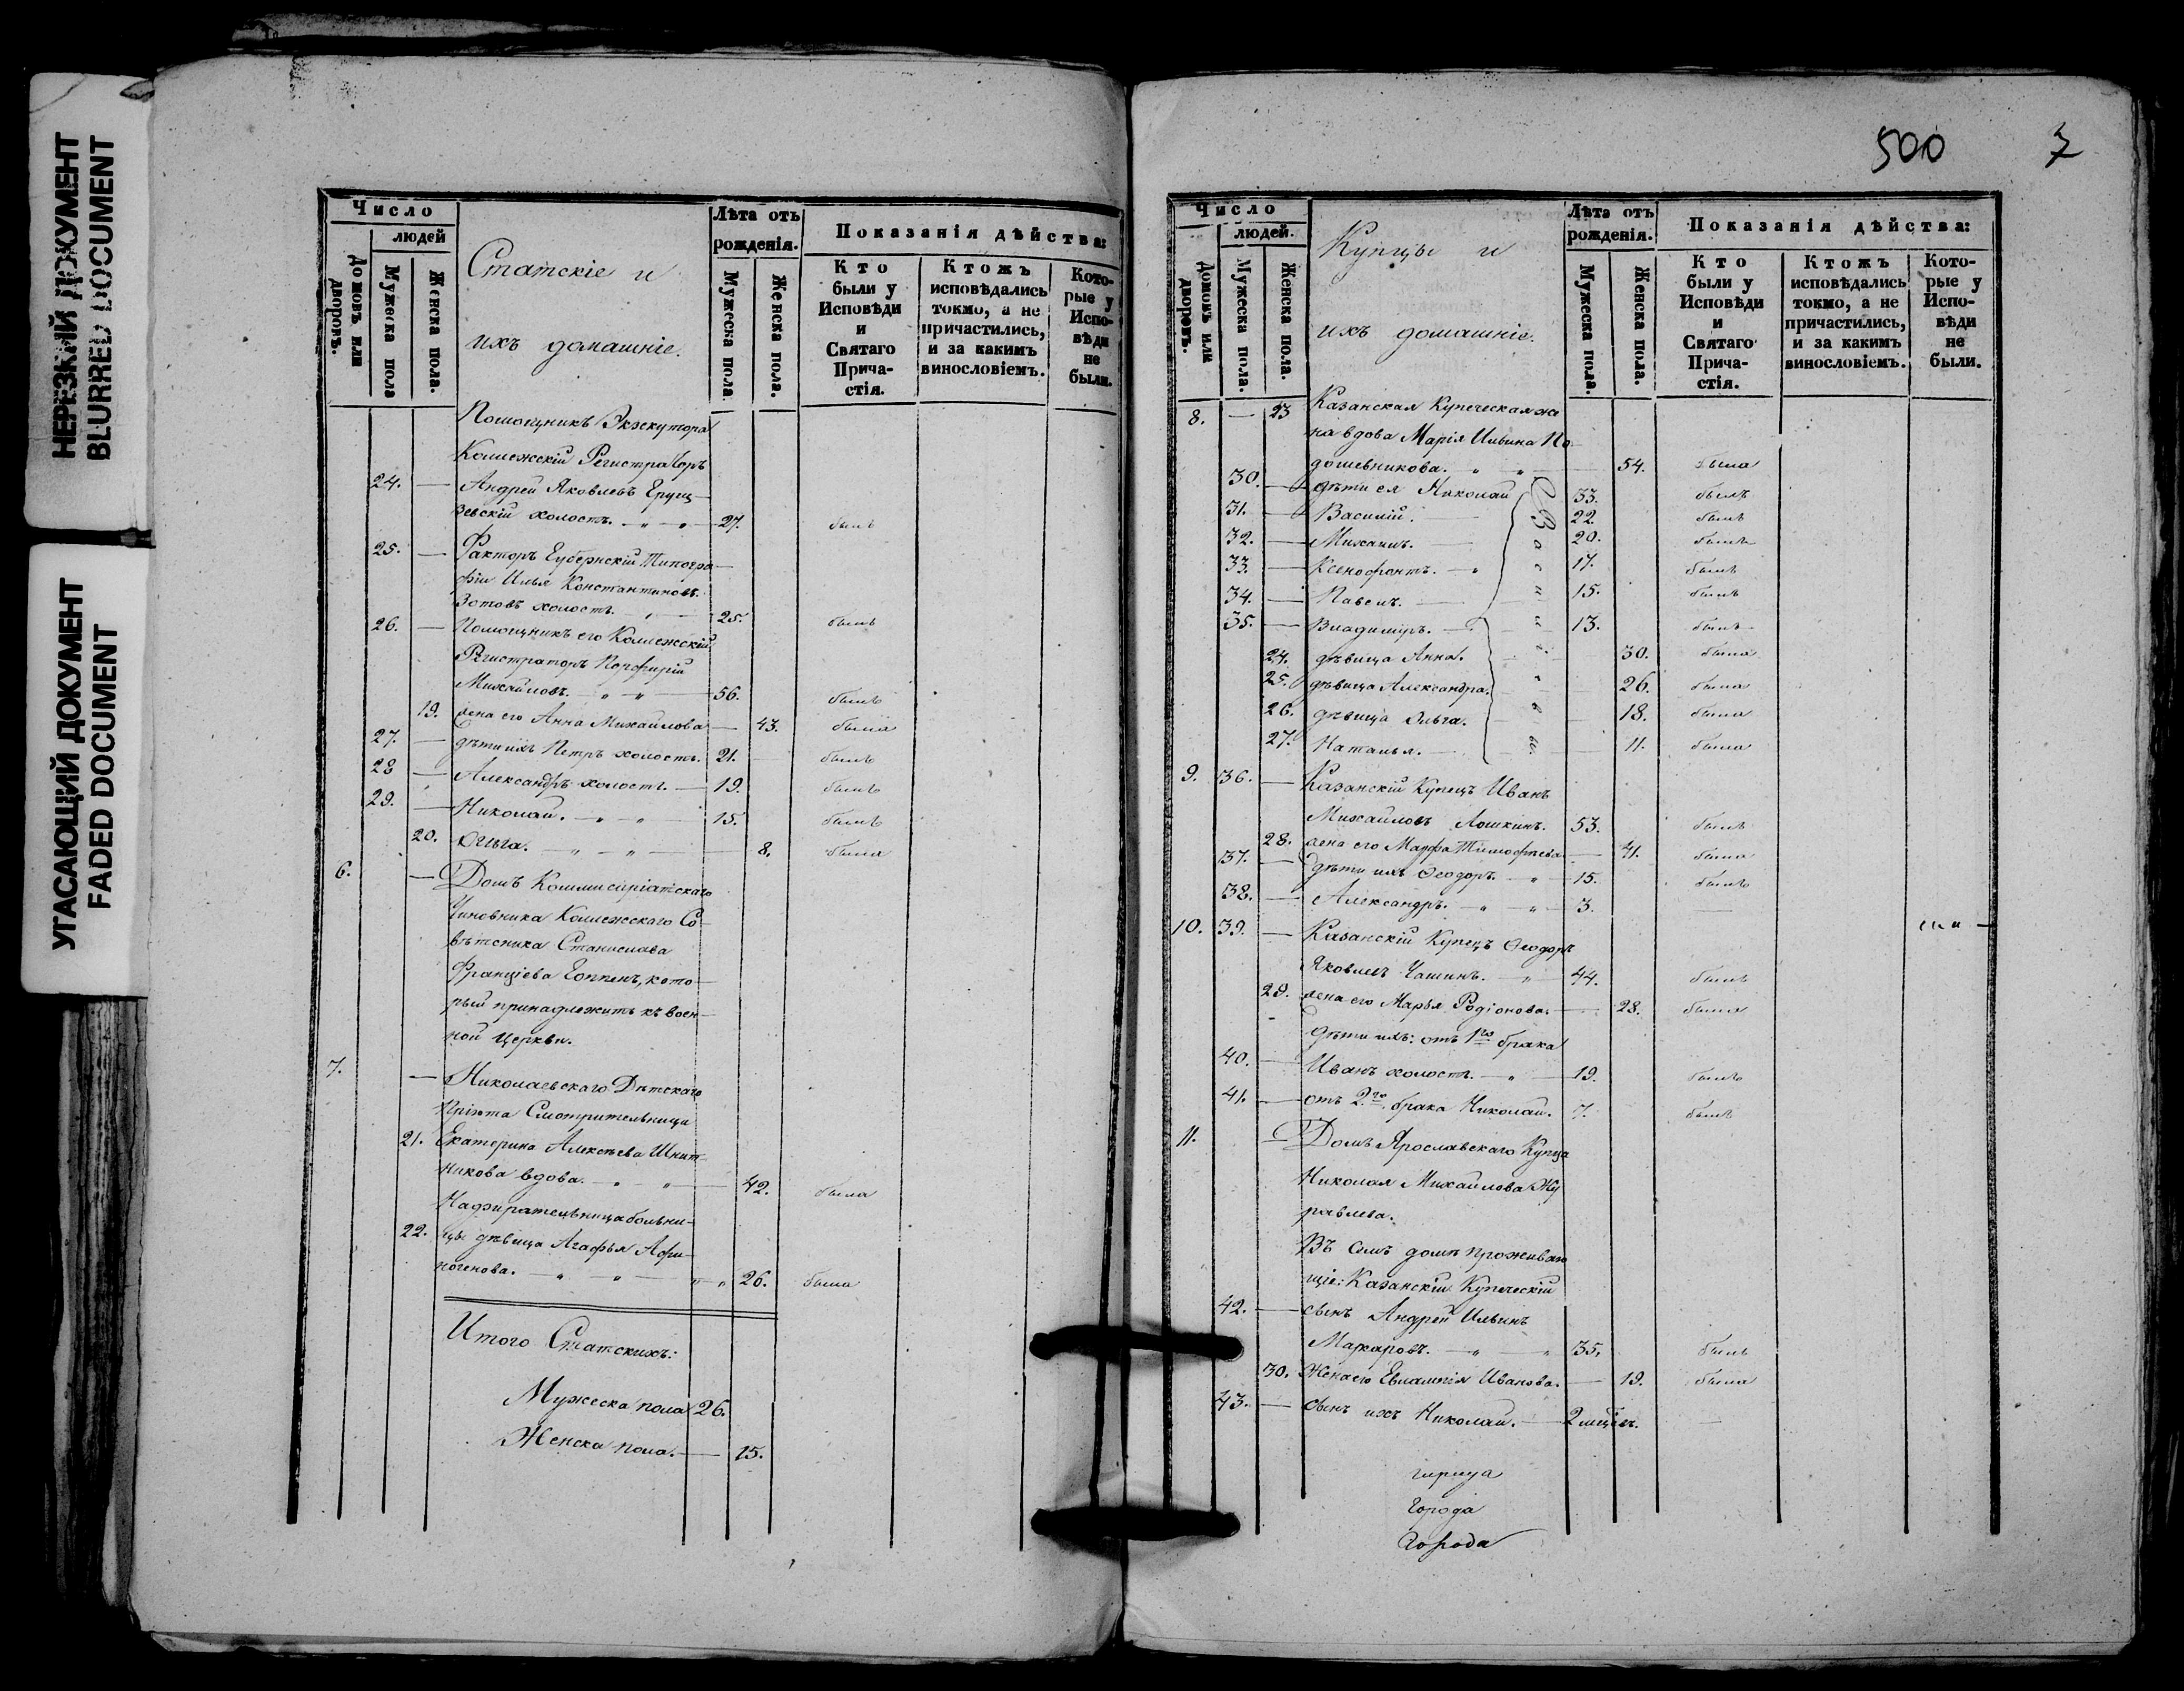 НЕРЕЗКИЙ ДОКУМЕНТ
BLURRED DOCUMENT
УГАСАЮЩИЙ ДОКУМЕНТ
FADED DOCUMENT
Число
людей
Домовъ или дворовъ.
Мужеска пола
Женска пола.
Статскіе и
ихъ домашніе.
Лѣта отъ
рожденія.
Мужеска пола
Женска пола.
Показанія дѣйства:
Кто были у Исповѣди и Святаго Прича-стія.
Ктожъ исповѣдались токмо, а не причастились, и за какимъ винословіемъ.
Кото-рые у Испо-вѣди не были.
Помощникъ Экзекутора
Коллежскій Регистраторъ
24. — Андрей Яковлевъ
холостъ. — 27. былъ
25. — Факторъ Губернскій Типогра-
фіи Илья Константиновъ
Зотовъ холостъ. — 25. былъ
26. — Помощникъ его Коллежскій
Регистраторъ Порфирій
Михайловъ. — „ — „ — 56. былъ
19. жена его Анна Михайлова — 43. была
27. — дѣти ихъ Петръ холостъ. 21. былъ
28 — Александръ холостъ. — 19. былъ
29. — Николай. — „ — „ 15. былъ
20. Ольга. — „ — „ — 8. была
6. — Домъ Коммисаріатскаго
Чиновника Коллежскаго Со-
вѣтсника Станислава
Францiева кото-
рый принадлежитъ къ воен-
ной церкви.
7. — Николаевскаго Дѣтскаго
Пріюта Смотрительница
21. Екатерина Алексѣева Шнит-
никова вдова. — „ — „ — 42. была
Надзирательница больни-
22. цы дѣвица Агафья Афи-
ногенова. — „ — „ — „ — „ 26. была
Итого Статскихъ:
Мужеска пола 26.
Женска пола. — 15.
500 7
Число
людей.
Домовъ или дворовъ.
Мужеска пола.
Женска пола.
Купцы и
ихъ домашніе.
Лѣта отъ
рожденія.
Мужеска пола.
Женска пола.
Показанія дѣйства:
Кто были у Исповѣди и Святаго Прича-стія.
Ктожъ исповѣдались токмо, а не причастились, и за какимъ винословіемъ.
Кото-рые у Испо-вѣди не были.
8. — 23 Казанская Купеческая же
на вдова Марія Ильина По-
дошевникова. „ „ — 54. была
30. — дѣти ея Николай 33. былъ
31. — Василій. 22. былъ
32. — Михаилъ. — 20. былъ
33. — Ксенофонтъ. — „ 17. былъ
34. — Павелъ. — 15. былъ
35. — Владиміръ. — 13. былъ
24. дѣвица Анна. 30. была
25. дѣвица Александра. 26. была
26. дѣвица Ольга. 18. была
27. Наталья. — 11. была
Васильевы
9. 36. — Казанскій Купецъ Иванъ
Михайловъ 53. былъ
28. жена его Марфа Тимофѣева — 41. была
37. — дѣти ихъ Ѳеодоръ. — „ — 15. былъ
38. — Александръ. — „ — „ — 3. —
10. 39. — Казанскій Купецъ Ѳеодоръ
Яковлевъ Чашинъ. — „ — 44. былъ
29. жена его Марья Родіонова. — 28. была
дѣти ихъ: отъ 1го брака
40. — Иванъ холостъ. — „ — 19. былъ
41. — отъ 2го брака Николай. 7. былъ
11. — Домъ Ярославскаго Купца
Николая Михайлова Жу
равлева.
Въ семъ домѣ проживаю
щіе: Казанскій Купеческій
42. — сынъ Андрей Ильинъ
Макаровъ. — „ — „ 35. былъ
30. Жена его Евлампія Иванова. — 19. была
43. — сынъ ихъ Николай. — 2 мѣсъ. —
города
города